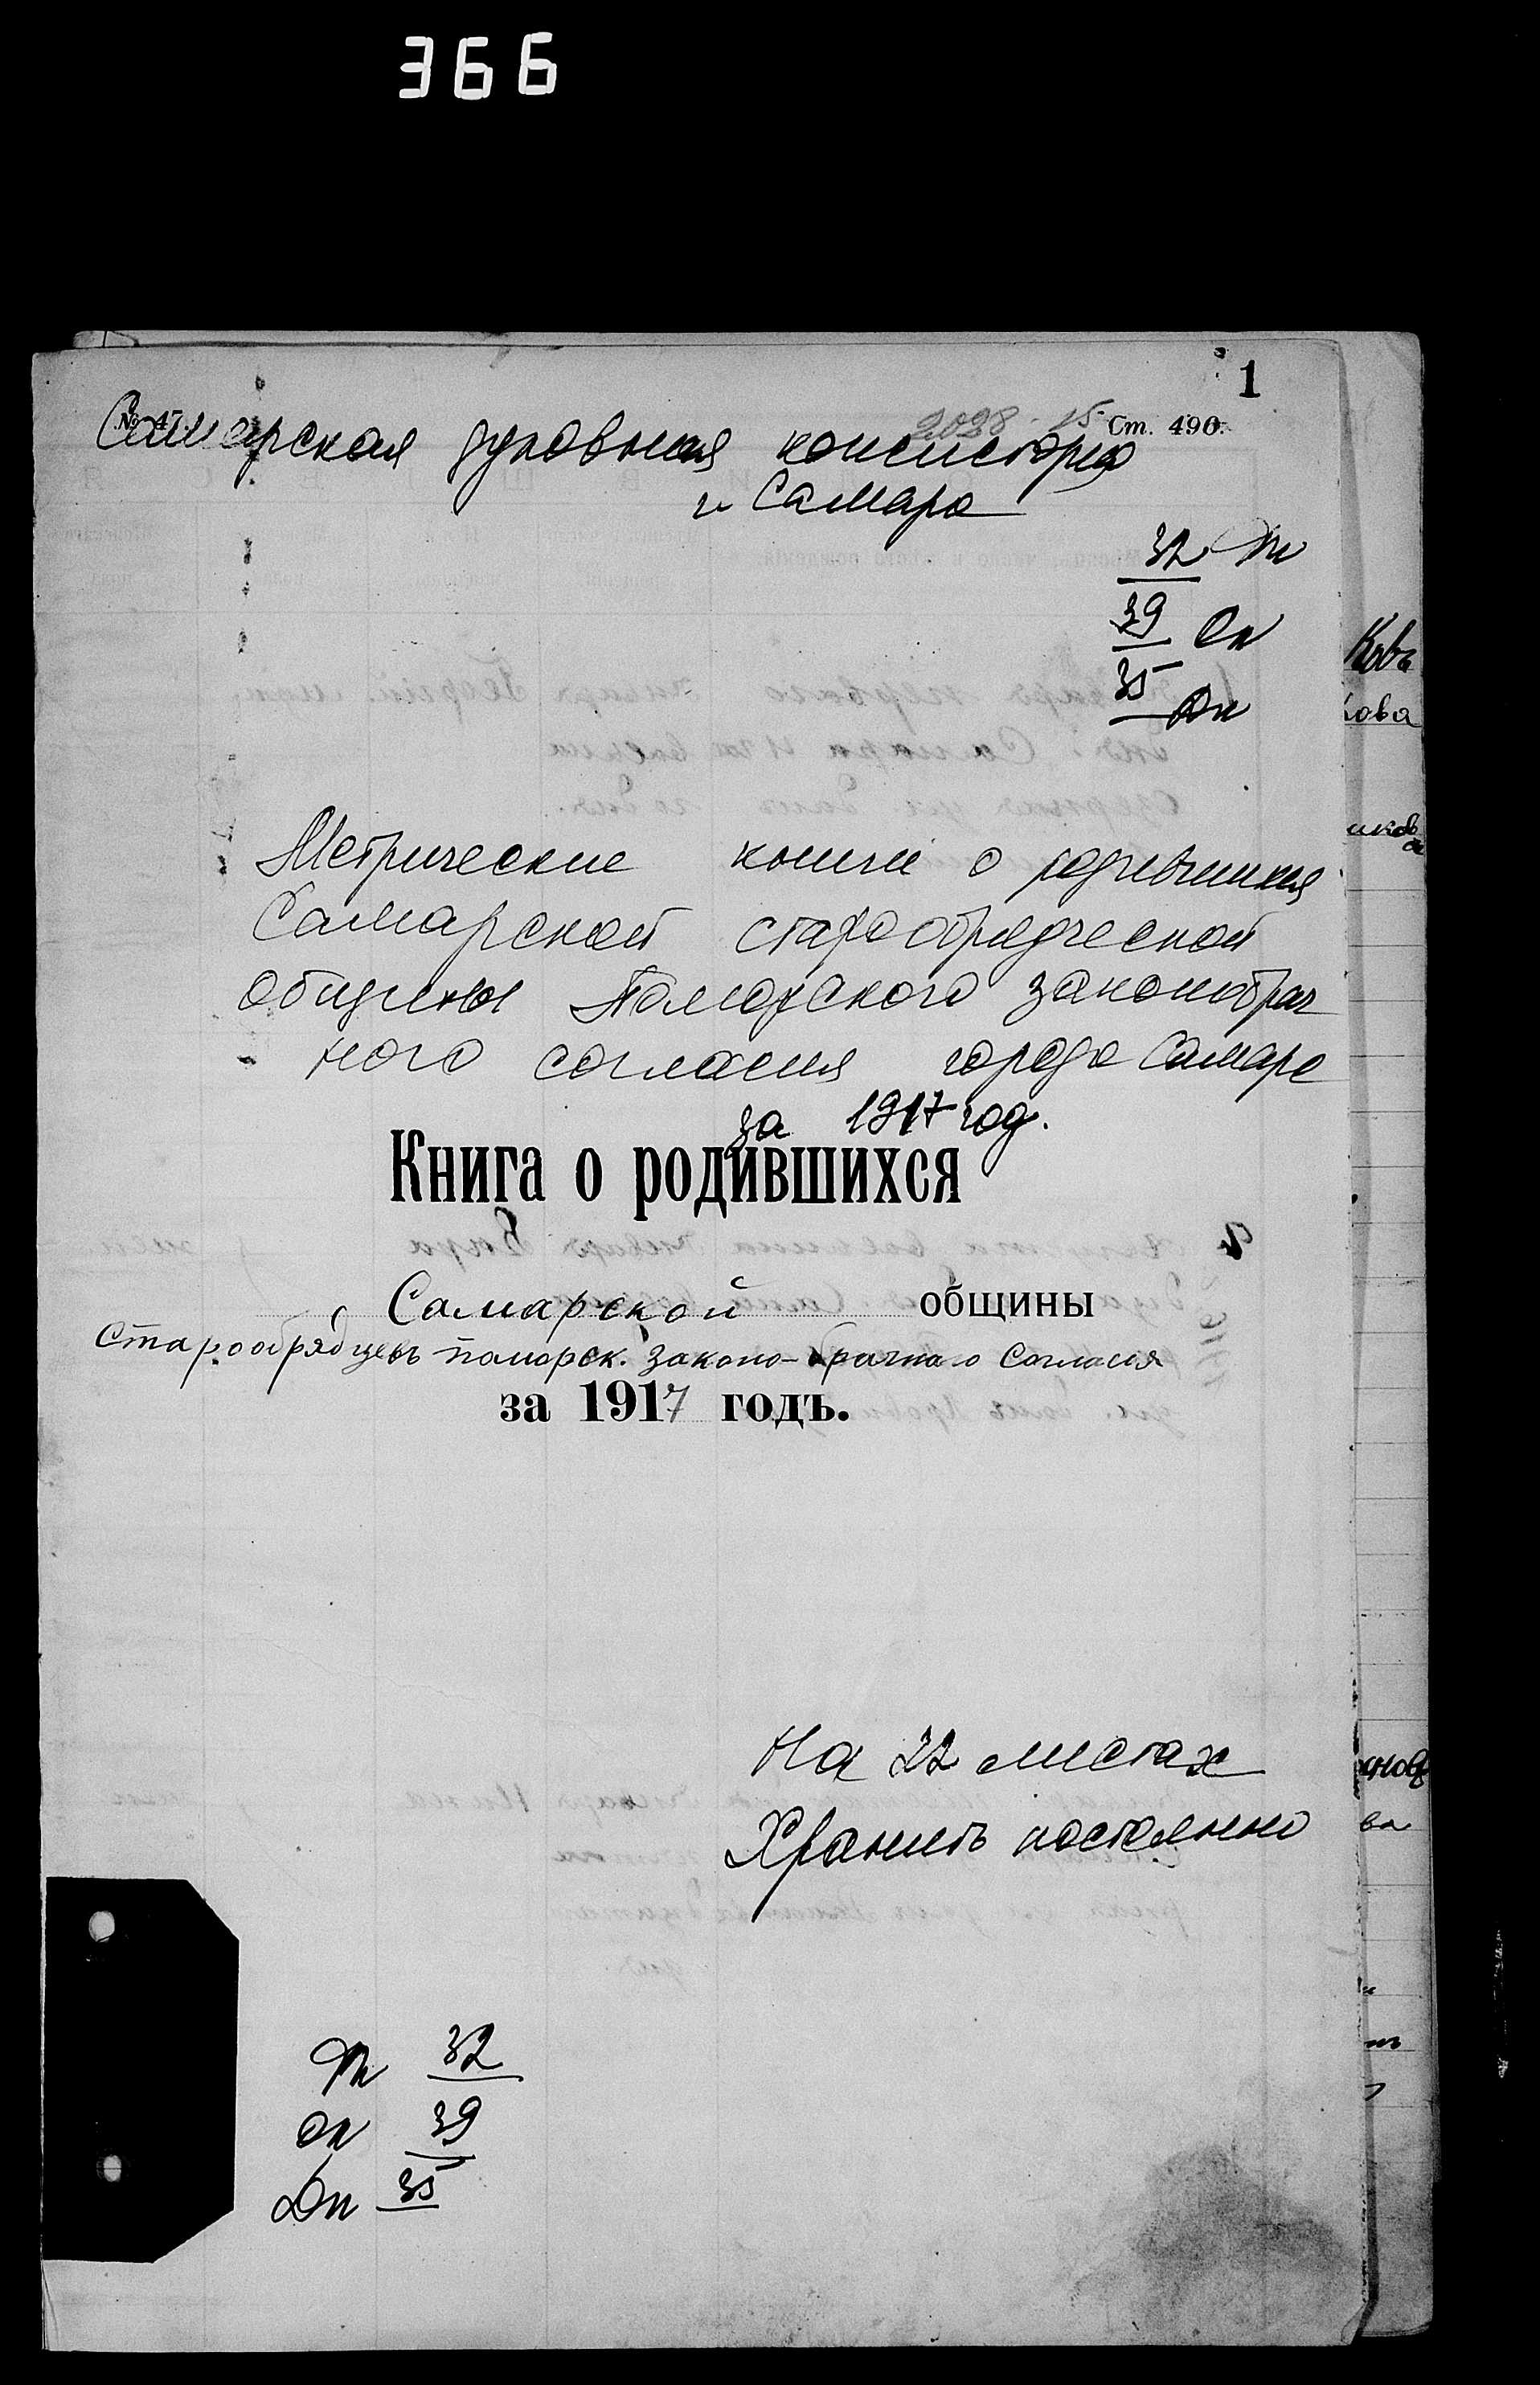 366
1
№ 47. Ст. 490.
Самарская духовная консистория
г. Самара
32
39 Оп
35 Дп
Метрические книги о родившихся
Самарской старообрядческой
общины Поморского законобрач
ного согласия города Самара
за 1917 год.
Книга о родившихся
Самарской общины
старообрядцевъ поморск. законо-брачнаго согласия
за 1917 годъ.
На 22 листах
Хранить постоянно
32
Оп 39
Дп 35